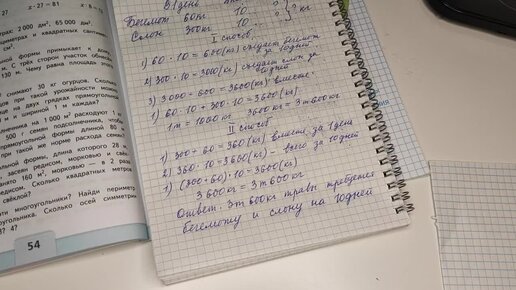 x - 27 - 81
2 000 дм², 65 000 дм²,
квадратных сантим
формы примыкает к дому
с трёх сторон участок обнесё
130 м. Чему равна площадь
снимают 30 кг огурцов. Сколь
при такой урожайности можно
двух грядках прямоугольной
и шириной 1 м каждая?
на 1 000 м² расходуют 1 кг
500 г семян подсолнечника
прямоугольной формы длиной
при такой же норме расхода семян
формы, длина которого 28 м
засеян редисом, морковью и свё
160 м², морковью — в 2 раза
Сколько квадратных метров
свёклой?
многоугольники? Найди периметр
Сколько осей симметрии
4?
54
В 1 день
Бегемот 60 кг 10 ? } ? кг
Слон 300 кг 10 ?
I способ
1) 60 · 10 = 600 (кг) съедает бегемот
за 10 дней
2) 300 · 10 = 3000 (кг) съедает слон за
10 дней
3) 3000 + 600 = 3600 (кг) - вместе.
1) 60 · 10 + 300 · 10 = 3600 (кг)
1 т = 1000 кг 3600 кг = 3 т 600 кг
II способ
1) 300 + 60 = 360 (кг) вместе за 1 день
2) 360 · 10 = 3600 (кг) - всего за 10 дней
1) (300 + 60) · 10 = 3600 (кг)
3 600 кг = 3 т 600 кг
Ответ: 3 т 600 кг травы требуется
бегемоту и слону на 10 дней